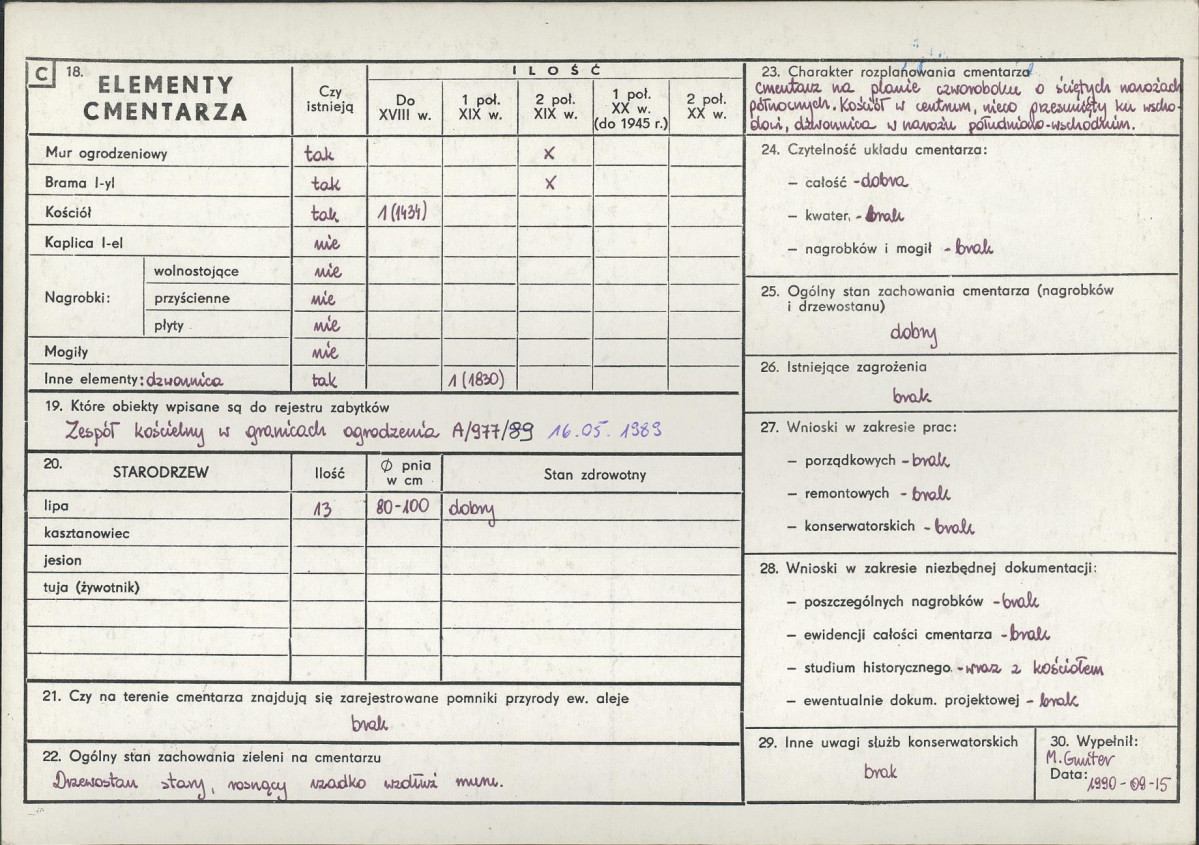 C 18. ELEMENTY CMENTARZA
Czy istnieją
ILOŚĆ
Do XVIII w.
1 poł. XIX w.
2 poł. XIX w.
1 poł. XX w. (do 1945 r.)
2 poł. XX w.
Mur ogrodzeniowy tak x
Brama l-yl tak x
Kościół tak 1 (1434)
Kaplica l-el nie
Nagrobki:
wolnostojące nie
przyścienne nie
płyty nie
Mogiły nie
Inne elementy: dzwonnica tak 1 (1830)
19. Które obiekty wpisane są do rejestru zabytków
Zespół kościelny w granicach ogrodzenia A/977/89 16.05.1989
20. STARODRZEW Ilość Ø pnia w cm Stan zdrowotny
lipa 13 80-100 dobry
kasztanowiec
jesion
tuja (żywotnik)
21. Czy na terenie cmentarza znajdują się zarejestrowane pomniki przyrody ew. aleje
brak
22. Ogólny stan zachowania zieleni na cmentarzu
Drzewostan stary, rosnący rzadko wzdłuż muru.
23. Charakter rozplanowania cmentarza
cmentarz na planie czworoboku o ściętych narożach
północnych. Kościół w centrum, nieco przesunięty ku wscho-
dowi, dzwonnica w narożu południowo-wschodnim.
24. Czytelność układu cmentarza:
– całość - dobra
– kwater, - brak
– nagrobków i mogił - brak
25. Ogólny stan zachowania cmentarza (nagrobków
i drzewostanu)
dobry
26. Istniejące zagrożenia
brak
27. Wnioski w zakresie prac:
– porządkowych - brak
– remontowych - brak
– konserwatorskich - brak
28. Wnioski w zakresie niezbędnej dokumentacji:
– poszczególnych nagrobków - brak
– ewidencji całości cmentarza - brak
– studium historycznego - wraz z kościołem
– ewentualnie dokum. projektowej - brak
29. Inne uwagi służb konserwatorskich
brak
30. Wypełnił:
M. Gmiter
Data: 1990-09-15